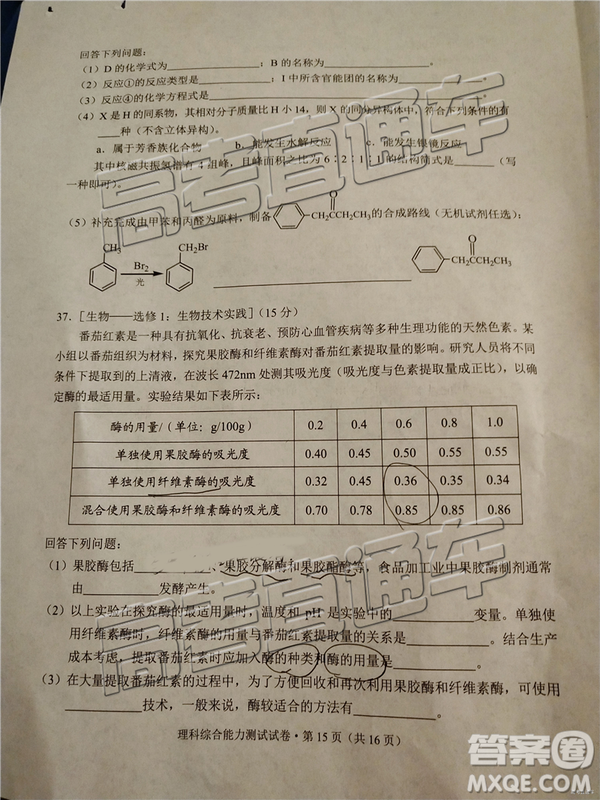 回答下列问题：
（1）D的化学式为____________；B的名称为____________。
（2）反应①的反应类型是____________；I中所含官能团的名称为____________。
（3）反应④的化学方程式是____________
（4）X是H的同系物，其相对分子质量比H小14，则X的同分异构体中，符合下列条件的有
____种（不含立体异构）。
a．属于芳香族化合物 b．能发生水解反应 c．能发生银镜反应
其中核磁共振氢谱有4组峰，且峰面积之比为6：2：1：1的结构简式是________（写
一种即可）。
（5）补充完成由甲苯和丙醛为原料，制备 CH₂CCH₂CH₃ O 的合成路线（无机试剂任选）：
CH₃ Br₂ 光 CH₂Br ____________ CH₂CCH₂CH₃ O
37．[生物——选修1：生物技术实践]（15分）
番茄红素是一种具有抗氧化、抗衰老、预防心血管疾病等多种生理功能的天然色素。某
小组以番茄组织为材料，探究果胶酶和纤维素酶对番茄红素提取量的影响。研究人员将不同
条件下提取到的上清液，在波长472nm处测其吸光度（吸光度与色素提取量成正比），以确
定酶的最适用量。实验结果如下表所示：
酶的用量/（单位：g/100g） 0.2 0.4 0.6 0.8 1.0
单独使用果胶酶的吸光度 0.40 0.45 0.50 0.55 0.55
单独使用纤维素酶的吸光度 0.32 0.45 0.36 0.35 0.34
混合使用果胶酶和纤维素酶的吸光度 0.70 0.78 0.85 0.85 0.86
回答下列问题：
（1）果胶酶包括____________、果胶分解酶和果胶酯酶等，食品加工业中果胶酶制剂通常
由________发酵产生。
（2）以上实验在探究酶的最适用量时，温度和pH是实验中的____________变量。单独使
用纤维素酶时，纤维素酶的用量与番茄红素提取量的关系是____________。结合生产
成本考虑，提取番茄红素时应加入酶的种类和酶的用量是____________。
（3）在大量提取番茄红素的过程中，为了方便回收和再次利用果胶酶和纤维素酶，可使用
________技术，一般来说，酶较适合的方法有____________。
理科综合能力测试试卷·第15页（共16页）
高考直通车
高考直通车
答案圈
MXQE.COM